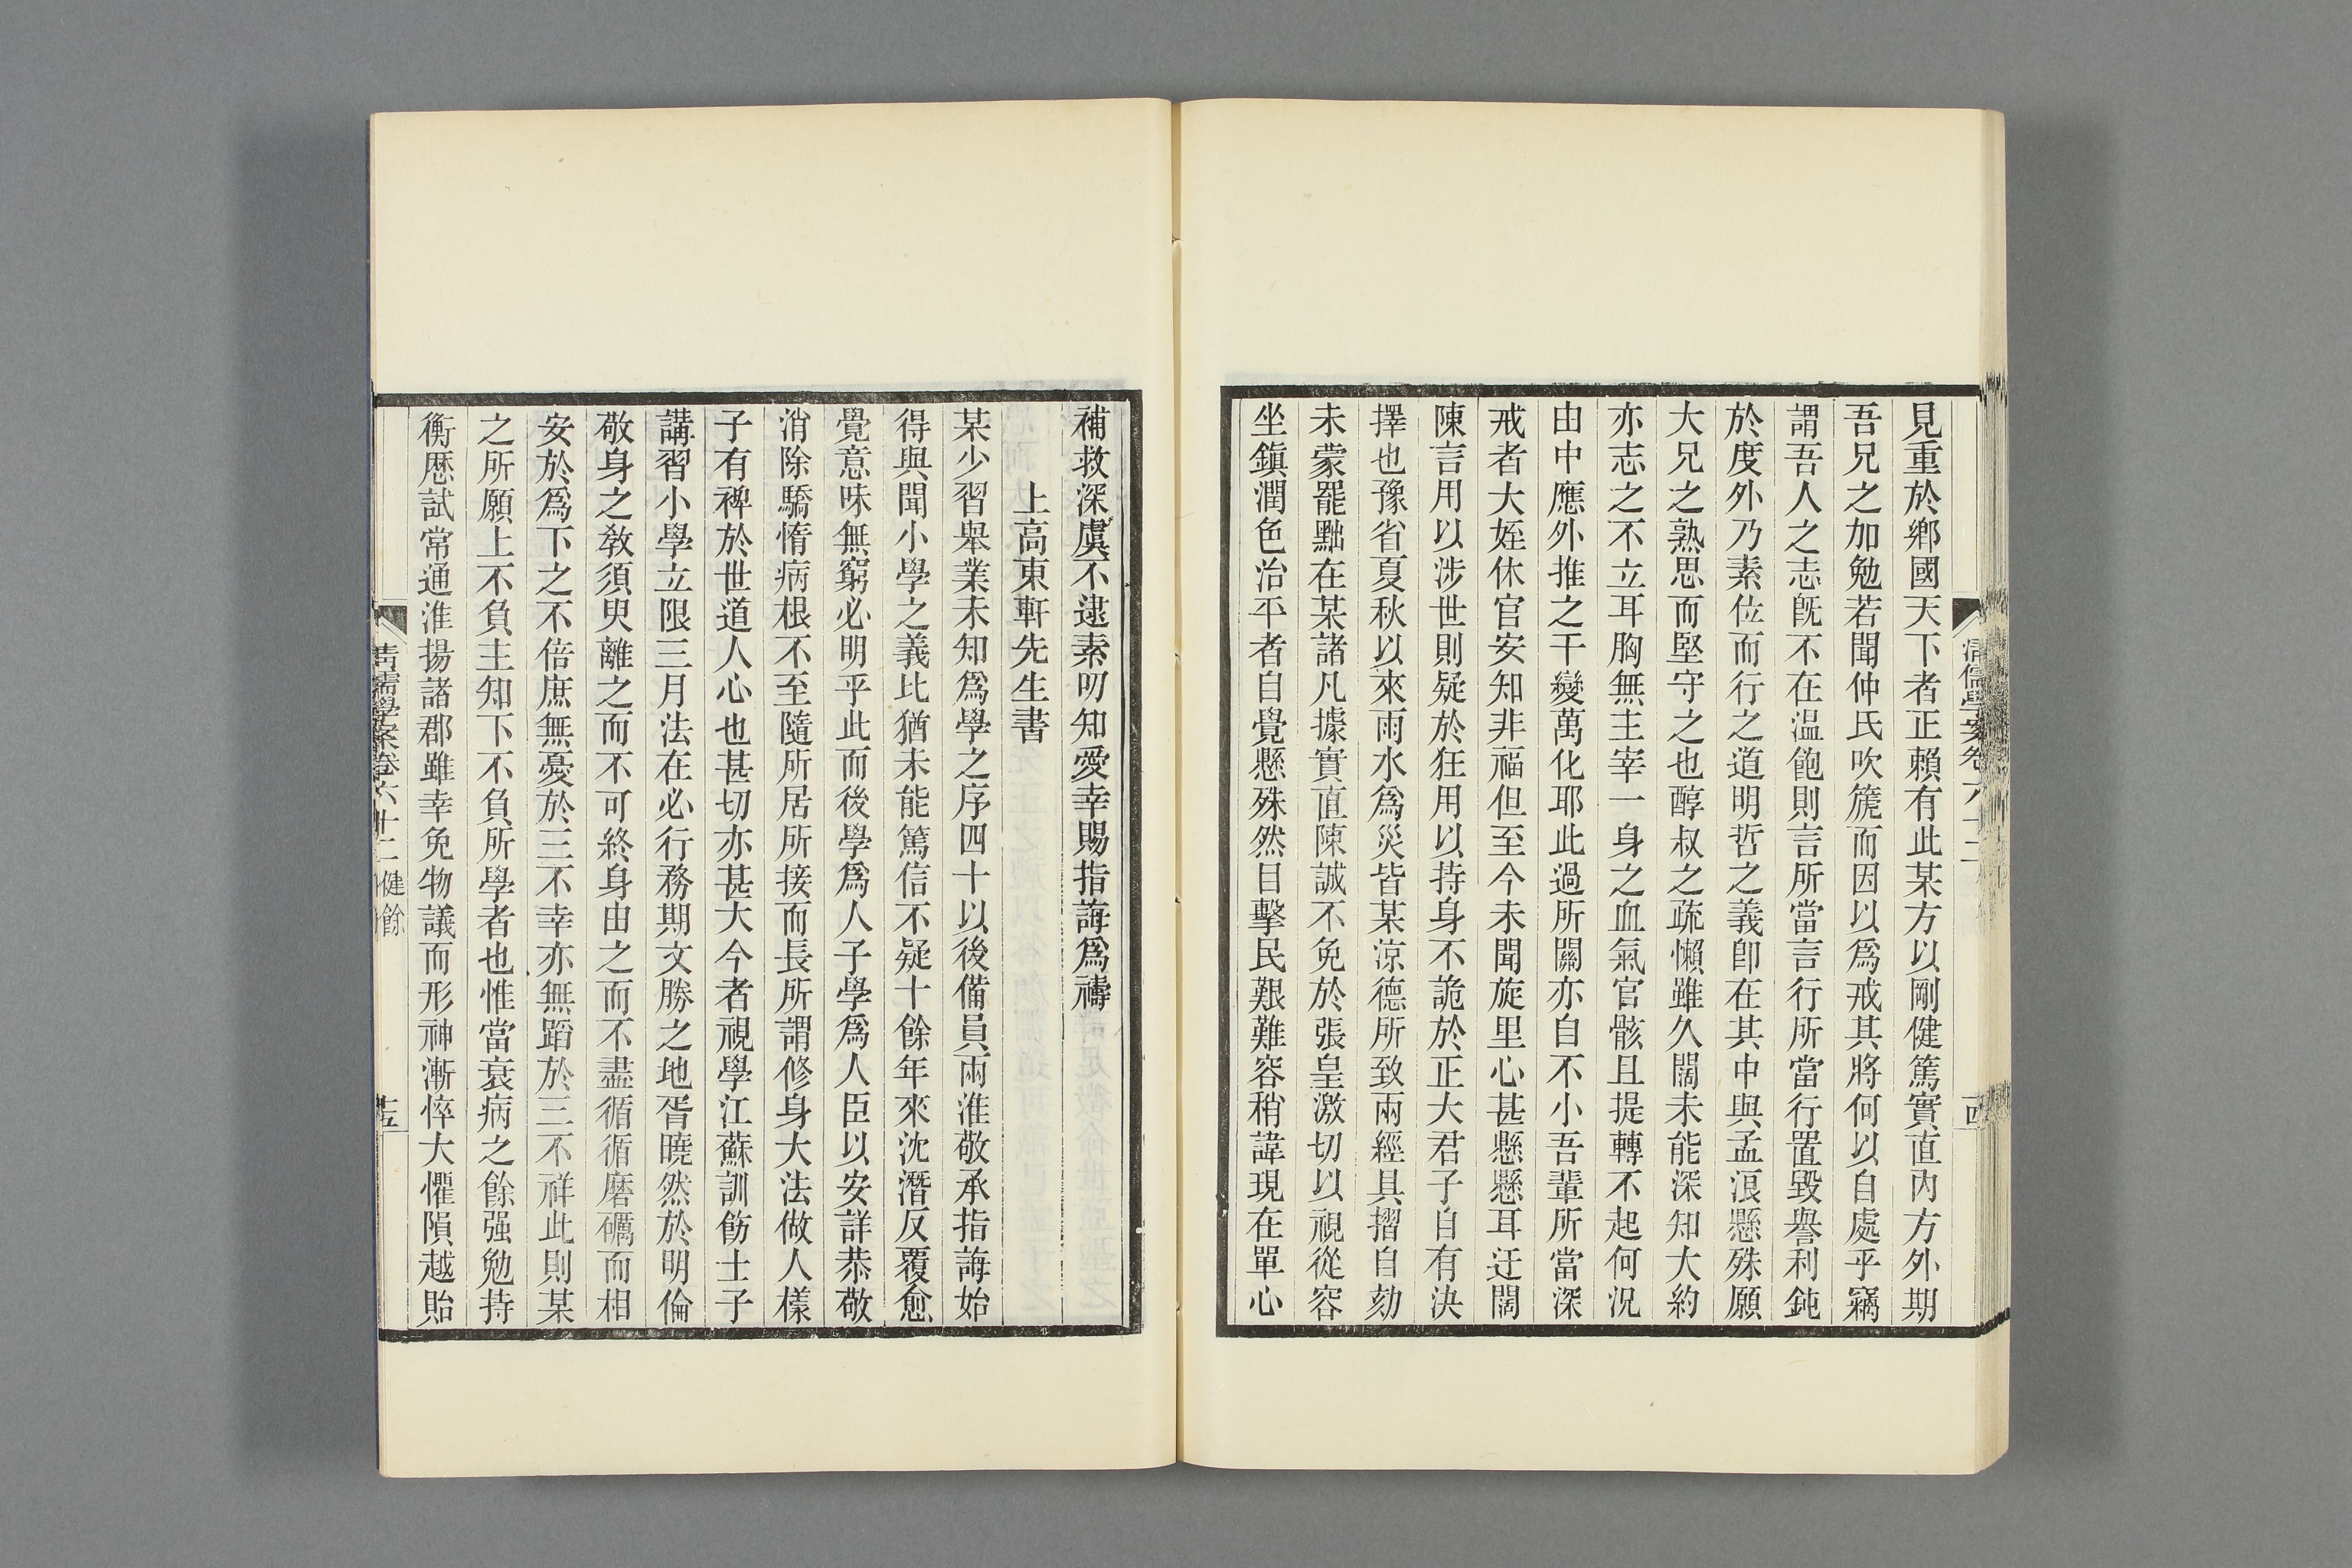 清儒學案卷六十二
見重於鄉國天下者正賴有此某方以剛健篤實直內方外期
吾兄之加勉若聞仲氏吹篪而因以爲戒其將何以自處乎竊
謂吾人之志旣不在溫飽則言所當言行所當行置毀譽利鈍
於度外乃素位而行之道明哲之義卽在其中與孟浪懸殊願
大兄之熟思而堅守之也醇叔之疏懶雖久闊未能深知大約
亦志之不立耳胸無主宰一身之血氣官骸且提轉不起何況
由中應外推之千變萬化耶此過所關亦自不小吾輩所當深
戒者大姪休官安知非福但至今未聞旋里心甚懸懸耳迂闊
陳言用以涉世則疑於狂用以持身不詭於正大君子自有決
擇也豫省夏秋以來雨水爲災皆某涼德所致兩經具摺自劾
未蒙罷黜在某諸凡據實直陳誠不免於張皇激切以視從容
坐鎭潤色治平者自覺懸殊然目擊民艱難容稍諱現在單心
補救深虞不逮素叨知愛幸賜指誨爲禱
上高東軒先生書
某少習舉業未知爲學之序四十以後備員兩淮敬承指誨始
得與聞小學之義比猶未能篤信不疑十餘年來沈潛反覆愈
覺意味無窮必明乎此而後學爲人子學爲人臣以安詳恭敬
消除驕惰病根不至隨所居所接而長所謂修身大法做人樣
子有裨於世道人心也甚切亦甚大今者視學江蘇訓飭士子
講習小學立限三月法在必行務期文勝之地胥曉然於明倫
敬身之敎須臾離之而不可終身由之而不盡循循磨礪而相
安於爲下之不倍庶無憂於三不幸亦無蹈於三不祥此則某
之所願上不負主知下不負所學者也惟當衰病之餘强勉持
衡歷試常通淮揚諸郡雖幸免物議而形神漸悴大懼隕越貽
清儒學案卷六十二 健餘
十五